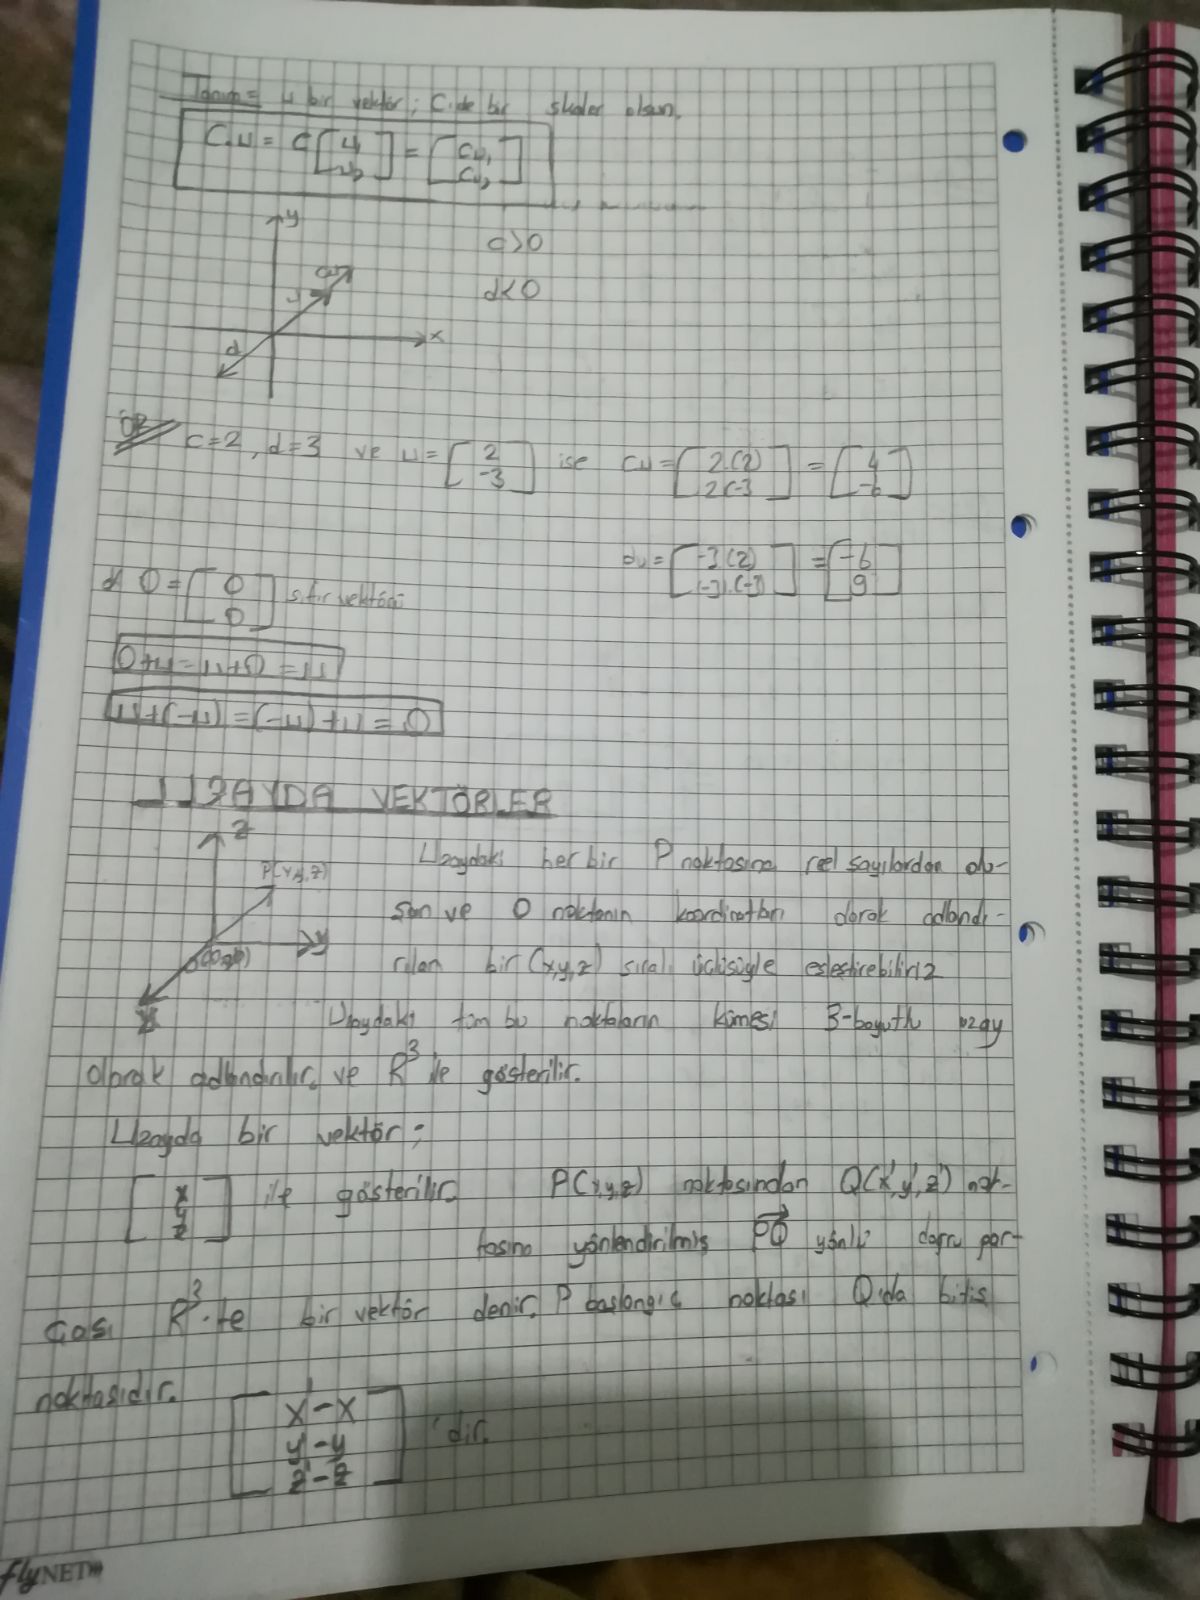 Tanım= u bir vektör; C'de bir skaler olsun.
C.u = C [u₁ u₂] = [cu₁ cu₂]
y
c>0
cu
u
d<0
x
d
ÖR c=2, d=3 ve u= [2 -3] ise cu= [2.(2) 2(-3] = [4 -6]
du= [-3.(2) (-3).(-3)] = [-6 9]
0= [0 0] sıfır vektörü
0+u=u+0=u
u+(-u)=(-u)+u=0
UZAYDA VEKTÖRLER
z
P(x,y,z)
Uzaydaki her bir P noktasına reel sayılardan olu-
y
san ve O noktanın koordinatları olarak adlandı-
rılan bir (x,y,z) sıralı üçlüsüyle eslestirebiliriz
x
Uzaydaki tüm bu noktaların kümesi 3-boyutlu uzay
olarak adlandırılır. ve R³ ile gösterilir.
Uzayda bir vektör;
[x y z] ile gösterilir. P(x,y,z) noktasından Q(x',y',z') nok-
tasına yönlendirilmis PQ yönlü doğru par-
çası R³.te bir vektör denir. P baslangıc noktası Q.da bitis
noktasıdır.
[x'-x y'-y z'-z] 'dir.
flyNET